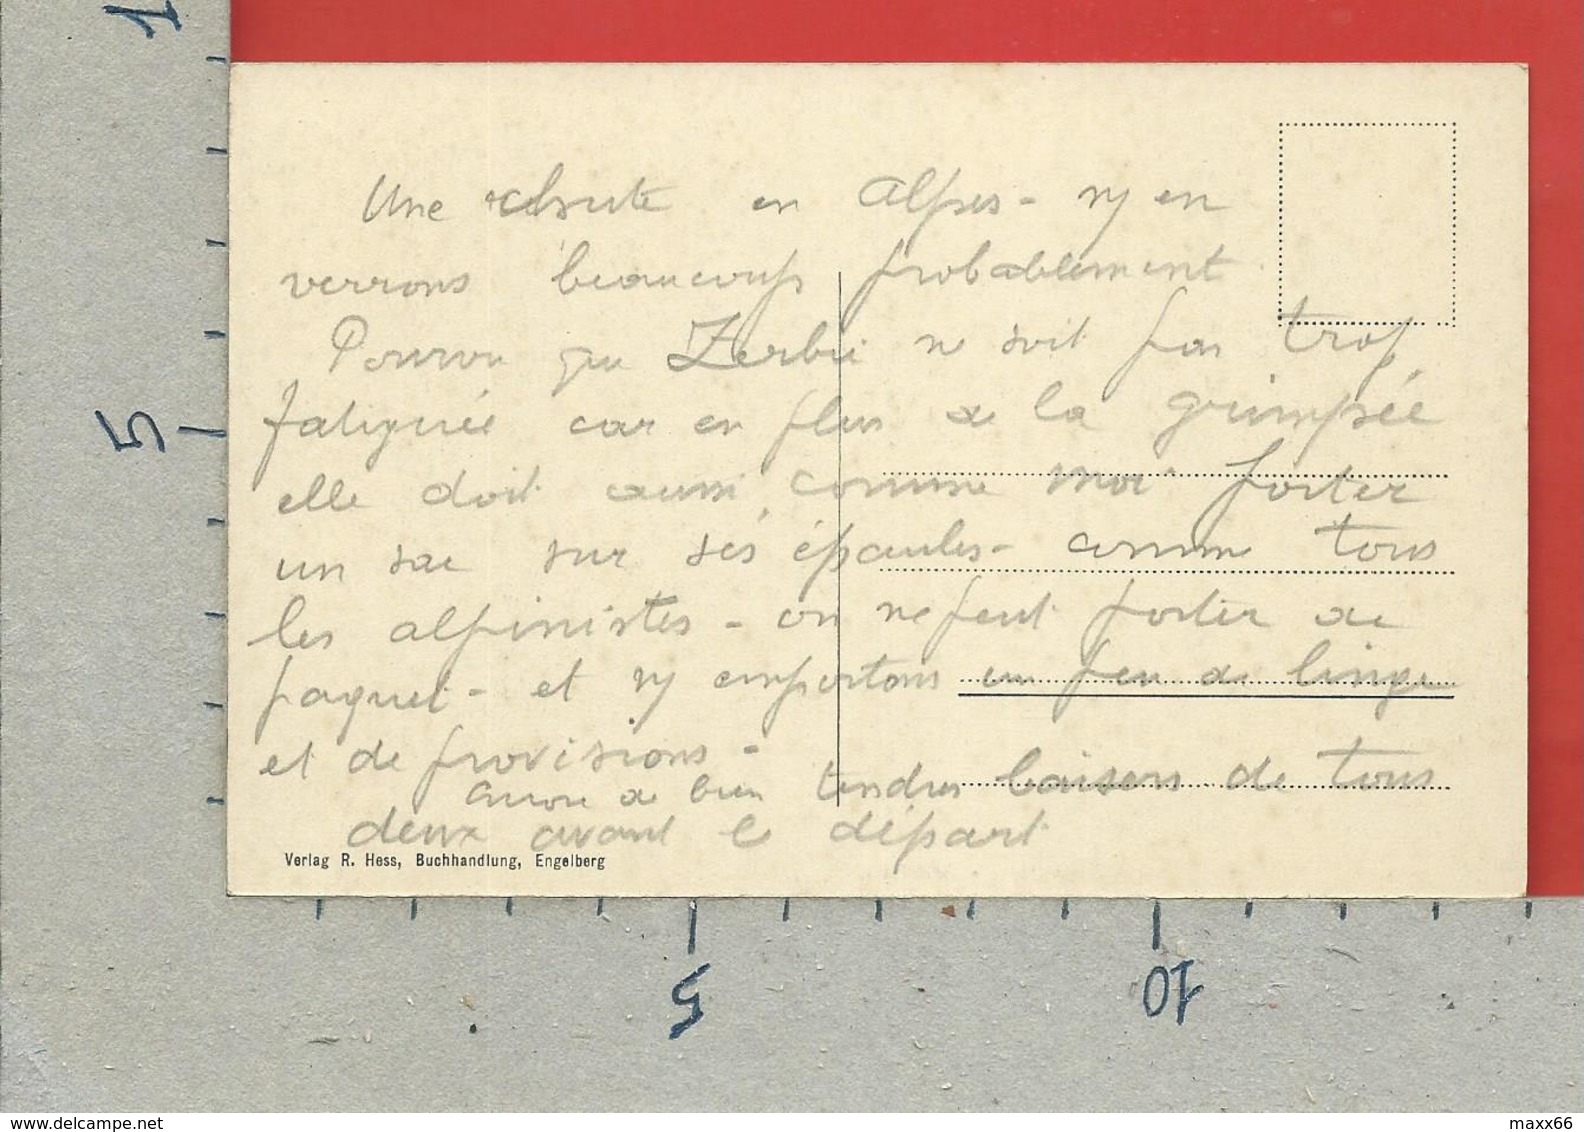 Une chute en Alpes - ns en
verrons beaucoup probablement
Pourvu que Zerbie ne soit pas trop
fatiguée car en plus de la grimpée
elle doit aussi comme moi porter
un sac sur ses épaules - comme tous
les alpinistes - on ne peut porter de
paquet - et ns emportons un peu de linge
et de provisions -
encore de bien tendres baisers de tous
deux avant le départ
Verlag R. Hess, Buchhandlung, Engelberg
1
5
5
10
www.delcampe.net
maxx66